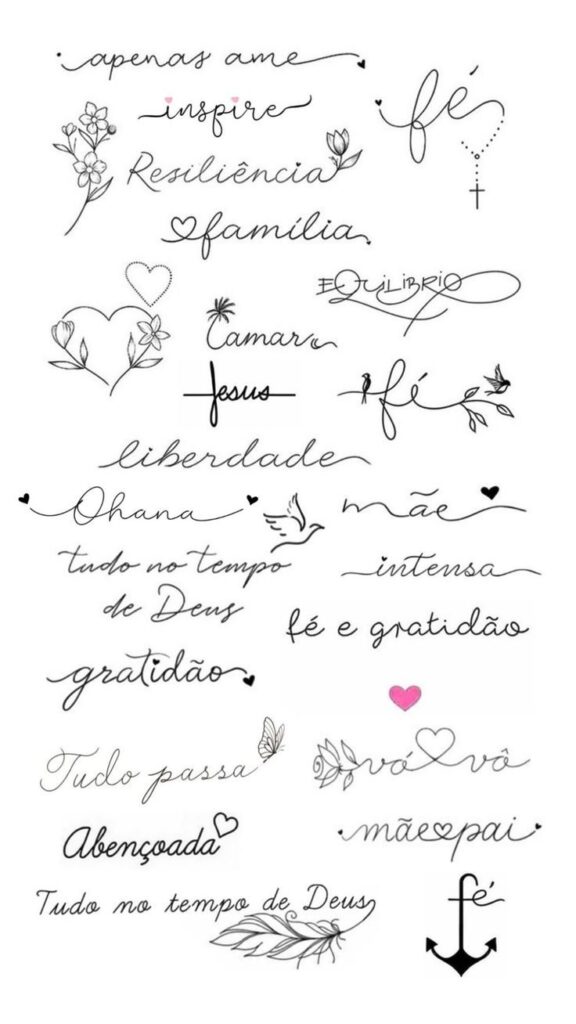 apenas ame
inspire
fé
Resiliência
família
EQUiLiBRiO
Camar
Jesus
fé
liberdade
Ohana
mãe
tudo no tempo
de Deus
intensa
fé e gratidão
gratidão
Tudo passa
vó vô
Abençoada
mãe pai
Tudo no tempo de Deus
fé